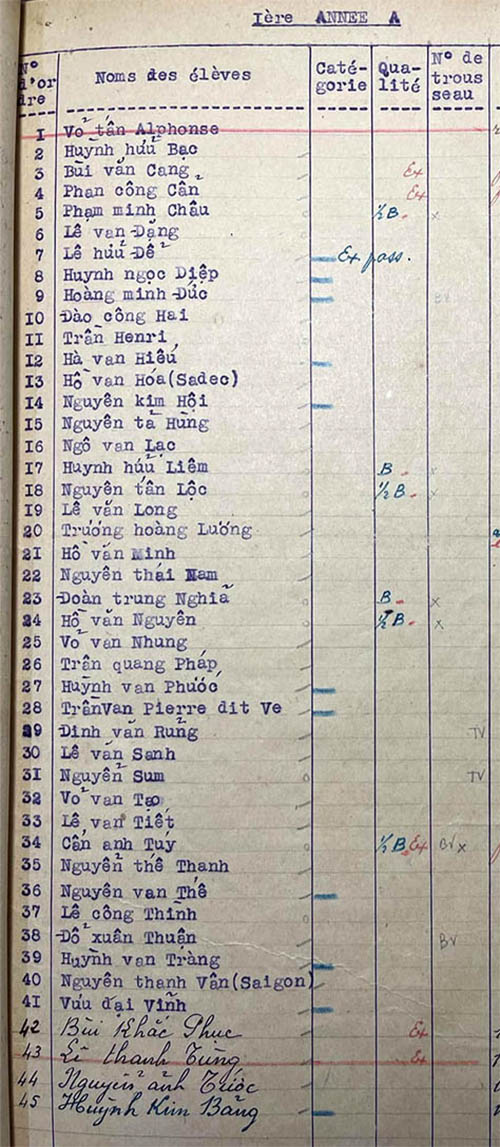 Ière ANNEE A
N° d'or dre Noms des élèves Caté- gorie Qua- lité N° de trous seau
1 Võ tấn Alphonse
2 Huỳnh hửu Bạc
3 Bùi văn Cang Ex
4 Phan công Cẩn Ex
5 Phạm minh Châu ½ B - x
6 Lê van Đặng
7 Lê hửu Đề Ex pass.
8 Huynh ngọc Diệp
9 Hoàng minh Đức BV
10 Đào công Hai
11 Trần Henri
12 Hà van Hiếu
13 Hồ van Hóa(Sadec)
14 Nguyễn kim Hội
15 Nguyễn tà Hùng
16 Ngô van Lạc
17 Huynh hửu Liêm B - x
18 Nguyễn tấn Lộc ½ B - x
19 Lê văn Long
20 Trương hoàng Lương
21 Hồ văn Minh
22 Nguyễn thái Nam
23 Đoàn trung Nghiã B - x
24 Hồ văn Nguyên ½ B - x
25 Võ van Nhung
26 Trần quang Pháp
27 Huỳnh van Phước
28 TrầnVan Pierre dit Ve
29 Đinh văn Rưng TV
30 Lê văn Sanh
31 Nguyễn Sum TV
32 Võ van Tạo
33 Lê van Tiết
34 Cẩn anh Tuý ½ B - Ex BV x
35 Nguyễn thế Thanh
36 Nguyễn van Thế
37 Lê công Thình
38 Đổ xuân Thuận BV
39 Huỳnh van Tràng
40 Nguyễn thanh Vân(Saigon)
41 Vưu đại Vĩnh
42 Bùi Khắc Phuc Ex
43 Lê thanh Tùng Ex
44 Nguyễn ảnh Tước
45 Huỳnh Kim Bảng